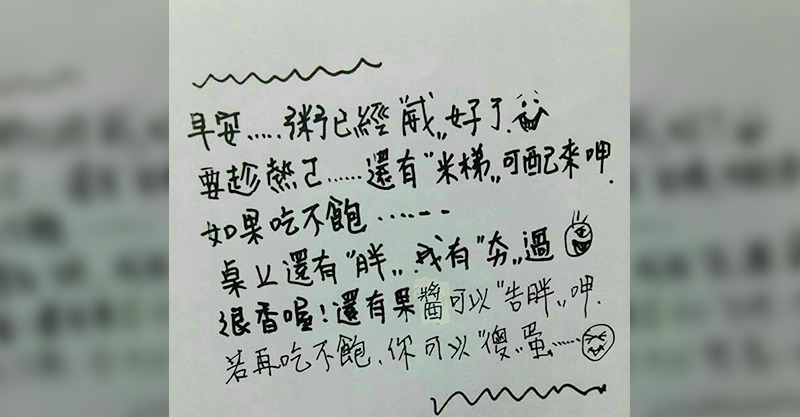 早安.....粥已經""好了.
要趁熱ㄛ......還有"米梯"可配來呷.
如果吃不飽......
桌上還有"胖".我有"夯"過
很香喔!還有果醬可以"告胖"呷.
若再吃不飽、你可以"傻"蛋......